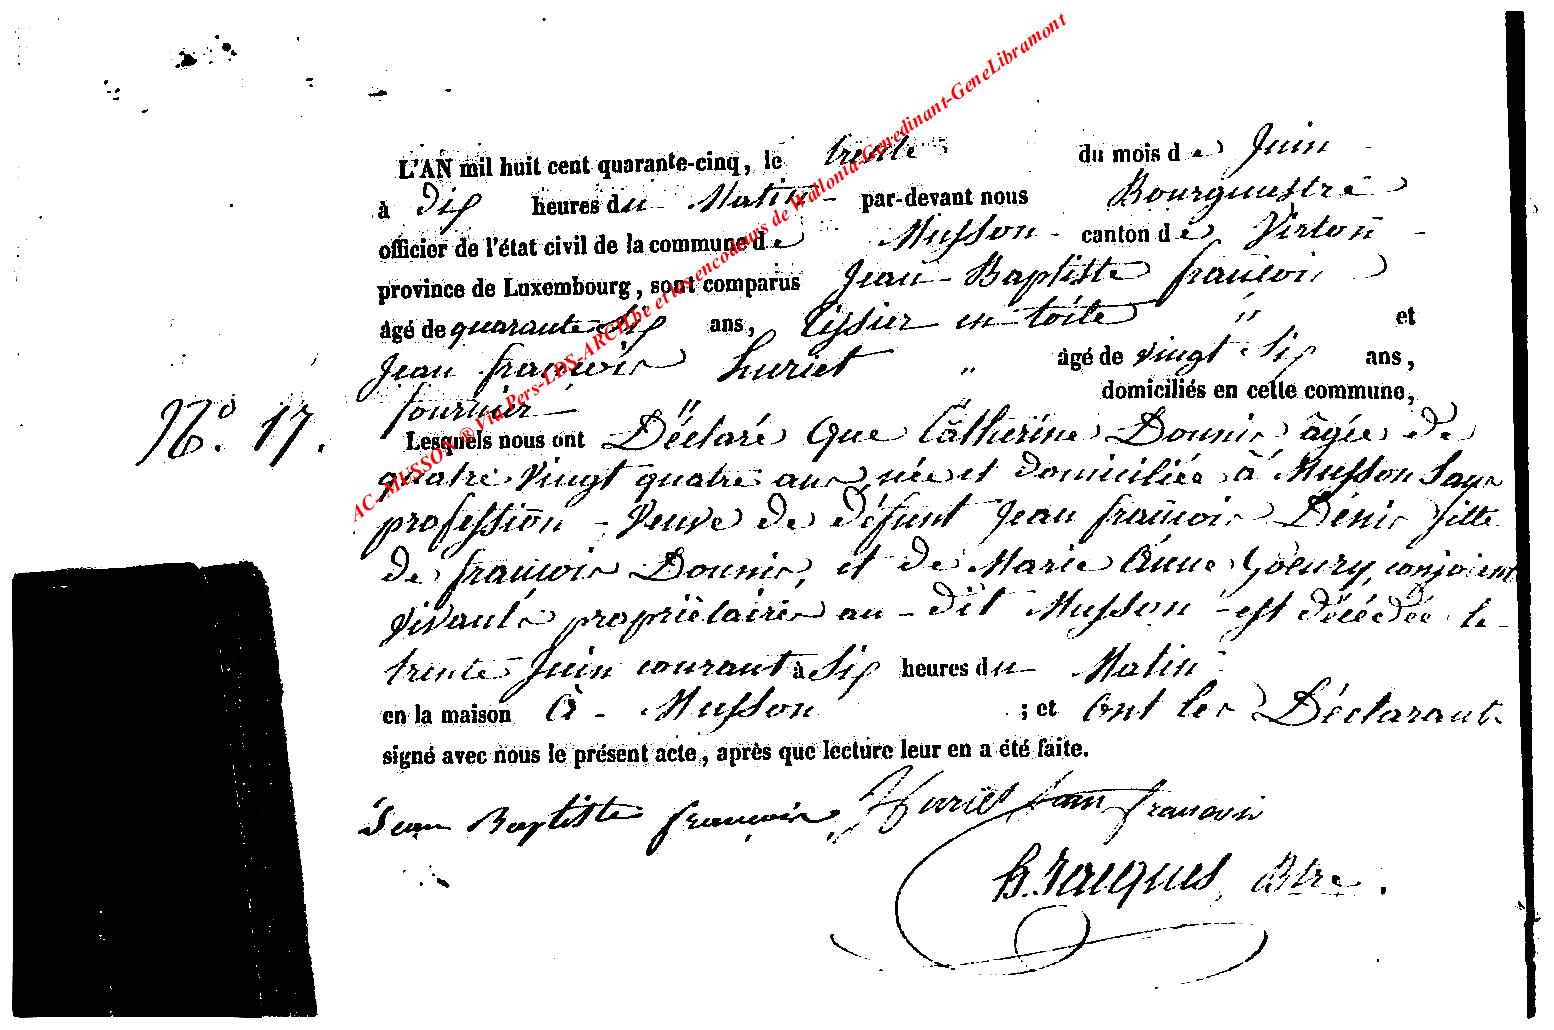 AC-MUSSON ® Via Pers-LDS-ARCH.be et les encodeurs de Wallonia-Genedinant-GeneLibramont
L'AN mil huit cent quarante-cinq, le trente du mois de Juin
à Dix heures du Matin par-devant nous Bourguestre
officier de l'état civil de la commune de Musson canton de Virton
province de Luxembourg, sont comparus Jean-Baptiste françois
âgé de quarante Six ans, tissier en toile " et
Jean françois huriet " âgé de vingt Six ans,
domiciliés en cette commune,
N° 17.
Lesquels nous ont Déclaré Que Catherine Dounis âgée de
quatre Vingt quatre ans née et domiciliée à Musson Sans
profession - Veuve de défunt Jean françois Dénis fille
de françois Dounis, et de Marie Anne Goeury, conjoient
vivants propriétaires au-dit Musson - est décédée le
trente Juin courant à Six heures du Matin
en la maison à - Musson ; et Ont les Déclarants
signé avec nous le présent acte, après que lecture leur en a été faite.
Jean Baptiste françois Huriet Jean francois
h. Jacques, Btre.